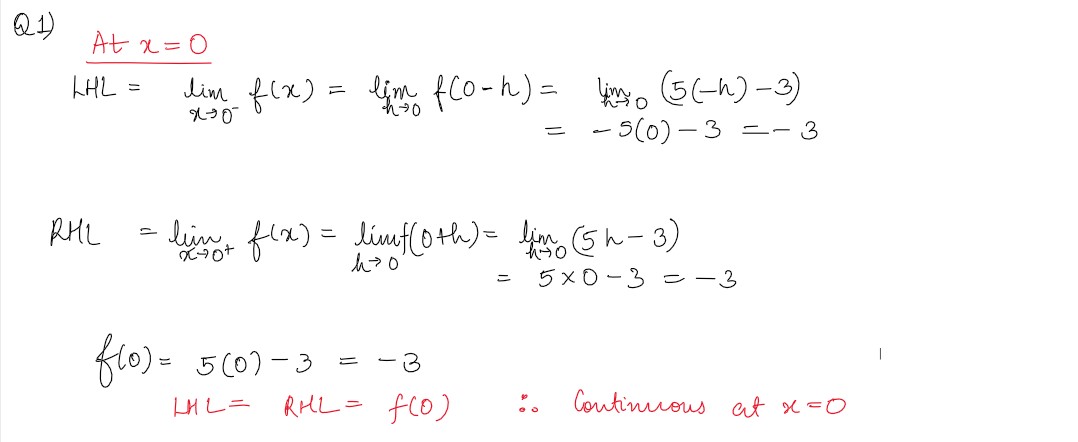 Q1)
At x = 0
LHL = lim x→0⁻ f(x) = lim h→0 f(0-h) = lim h→0 (5(-h) - 3)
= -5(0) - 3 = -3
RHL = lim x→0⁺ f(x) = lim h→0 f(0+h) = lim h→0 (5h - 3)
= 5×0 - 3 = -3
f(0) = 5(0) - 3 = -3
LHL = RHL = f(0) ∴ Continuous at x = 0